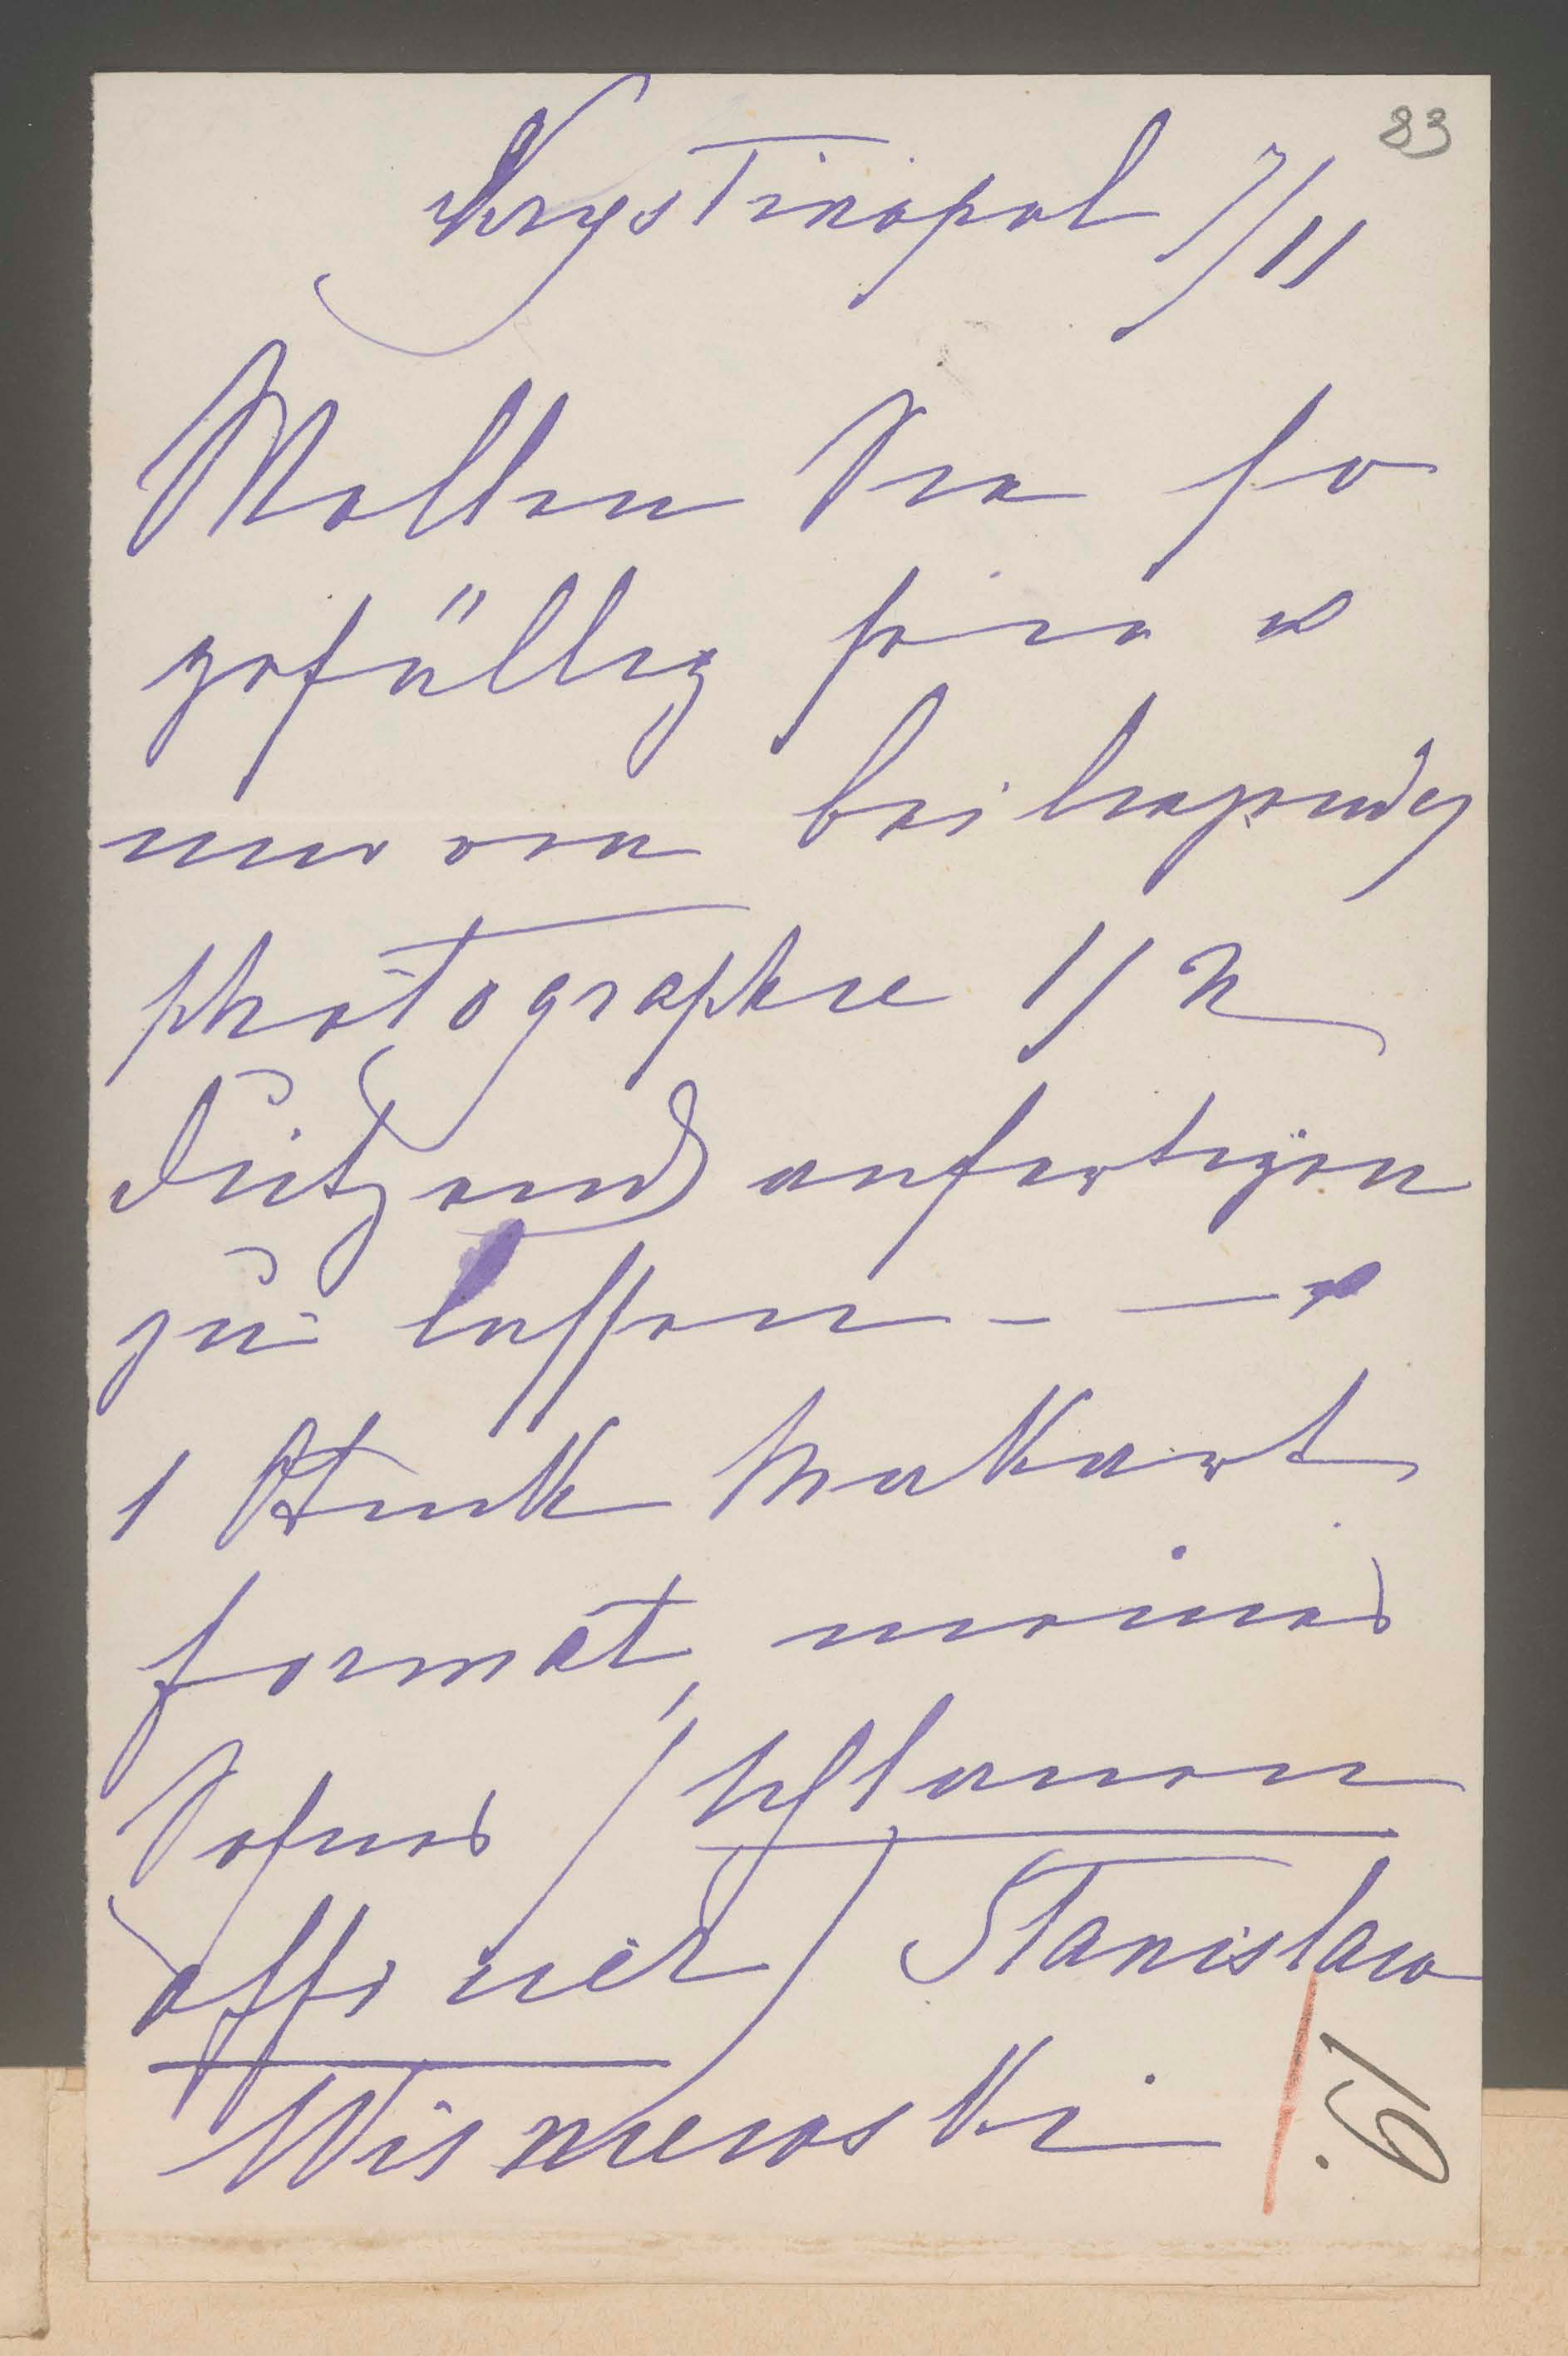 83
Krystinopol 7/11
Wollen Sie so
gefällig sein u
mir von beiliegender
photographie 1/2
Dutzend anfertigen
zu lassen – – u
1 Stück Makart
format, meines
Sohnes / Uhlanen
offizier / Stanislaw
Wisniewski
19.